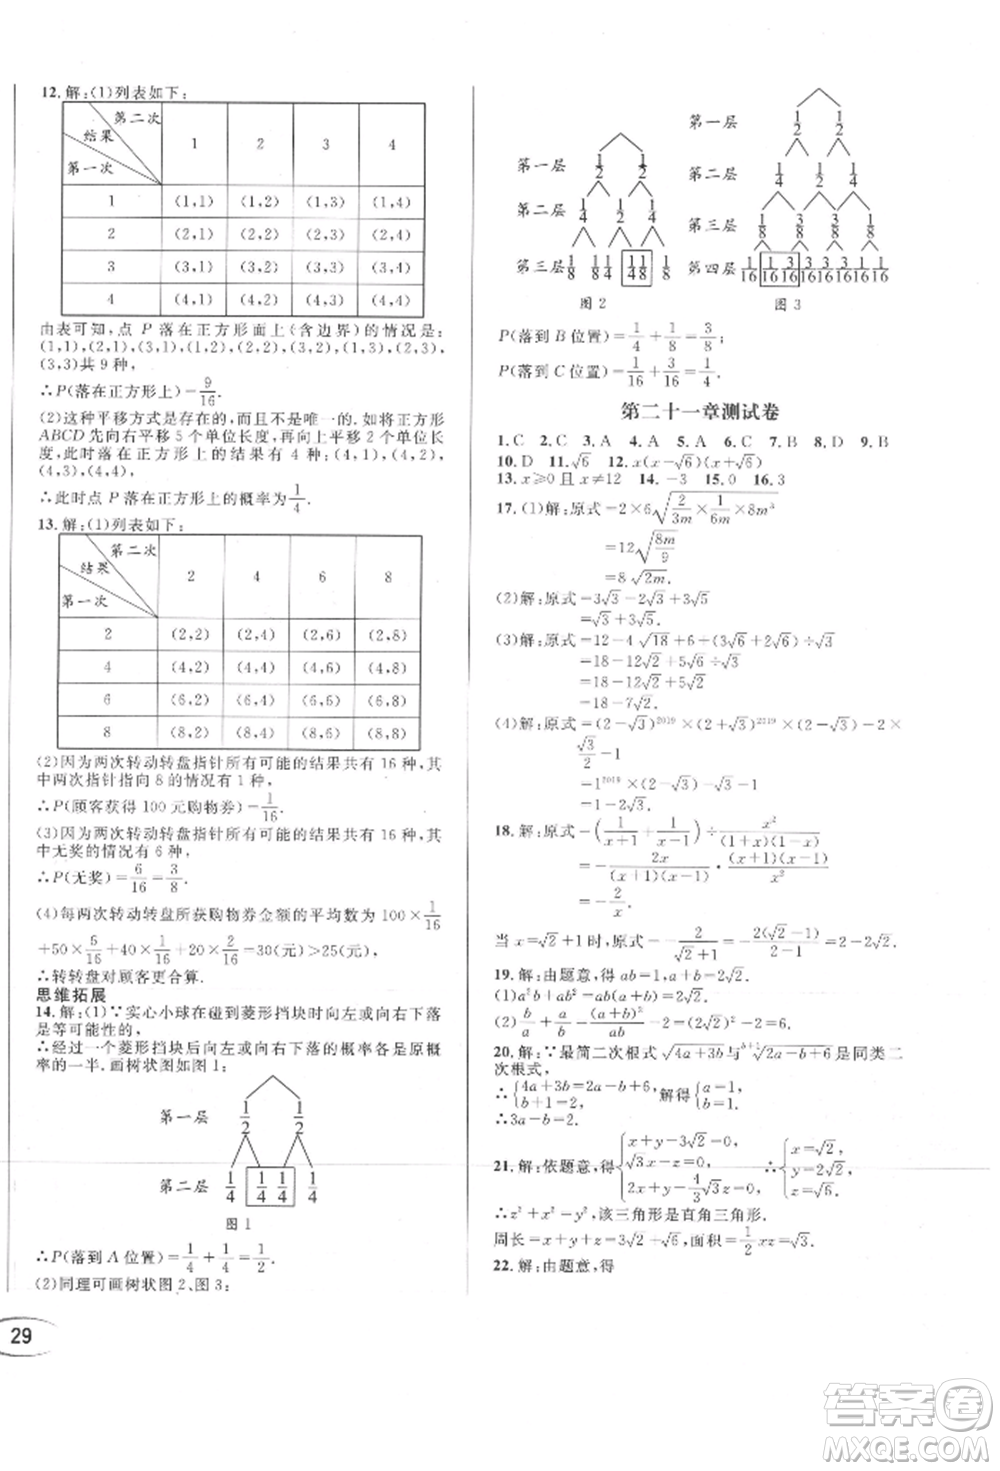 12.解:(1)列表如下:
第二次
结果
第一次
1 2 3 4
1 (1,1) (1,2) (1,3) (1,4)
2 (2,1) (2,2) (2,3) (2,4)
3 (3,1) (3,2) (3,3) (3,4)
4 (4,1) (4,2) (4,3) (4,4)
由表可知,点 P 落在正方形面上(含边界)的情况是:
(1,1),(2,1),(3,1),(1,2),(2,2),(3,2),(1,3),(2,3),
(3,3)共 9 种,
∴P(落在正方形上)=9/16.
(2)这种平移方式是存在的,但不是唯一的.如将正方形
ABCD先向右平移5个单位长度,再向上平移2个单位长
度,此时落在正方形上的结果有4种:(4,4),(3,3),
(4,3),(3,4),
∴此时点 P 落在正方形上的概率为1/4.
13.解:(1)列表如下:
第二次
结果
第一次
2 4 6 8
2 (2,2) (2,4) (2,6) (2,8)
4 (4,2) (4,4) (4,6) (4,8)
6 (6,2) (6,4) (6,6) (6,8)
8 (8,2) (8,4) (8,6) (8,8)
(2)因为两次转动转盘指针所有可能的结果共有 16 种,
其中两次指针指向 8 的情况有 1 种,
∴P(顾客获得 100 元购物券)=1/16.
(3)因为两次转动转盘指针所有可能的结果共有 16 种,
其中无奖的情况有 6 种,
∴P(无奖)=6/16=3/8.
(4)每两次转动转盘所获购物券金额的平均数为 100×1/16
+50×5/16+40×2/16+20×2/16=30(元)>25(元),
∴转转盘对顾客更合算.
思维拓展
14.解:(1)∵实心小球在碰到菱形挡块时向左或向右下落
是等可能性的,
∴经过一个菱形挡块后向左或向右下落的概率各是原概
率的一半.画树状图如图1:
第一层 1/2 1/2
第二层 1/4 1/4 1/4 1/4
图 1
∴P(落到 A 位置)=1/4+1/4=1/2.
(2)同理可画树状图 2、图 3:
29
第一层 1/2 1/2
第二层 1/4 1/2 1/4
第三层 1/8 1/8 1/4 1/4 1/8 1/8
图 2
第一层 1/2 1/2
第二层 1/4 1/2 1/4
第三层 1/8 3/8 3/8 1/8
第四层 1/16 1/16 3/16 3/16 3/16 3/16 1/16 1/16
图 3
P(落到 B 位置)=1/4+1/8=3/8;
P(落到 C 位置)=1/16+3/16=1/4.
第二十一章测试卷
1.C 2.C 3.A 4.A 5.A 6.C 7.B 8.D 9.B
10.D 11.√6 12.x(x-√6)(x+√6)
13.x≥0且x≠12 14.-3 15.0 16.3
17.(1)解:原式=2×6√(2/3m×1/6m×8m³)
=12√(8m/9)
=8√2m.
(2)解:原式=3√3-2√3
=√3+√3.
(3)解:原式=12-4√18+(3√6+2√6)÷√3
=18-12√2+5√6÷√3
=18-12√2+5√2
=18-7√2.
(4)解:原式=(2-√3)²⁰¹⁹×(2+√3)²⁰¹⁹-2×
√3/2-1
=1²⁰¹⁹×(2+√3)-√3-1
18.解:原式=-(1/(x+1)+1/(x-1))÷x²/((1+x)(1-x))
=-2x/((x+1)(x-1))·(x+1)(x-1)/x²
=-2/x.
当 x=√2+1时,原式=-2/(√2+1)=-2(√2-1)/((√2+1)(√2-1))=2-2√2.
19.解:由题意,得 ab=1,a+b=2√2.
(1)a²b+ab²=ab(a+b)=2√2.
20.解:∵最简二次根式√(4a+3b)与ᵇ⁺¹√(2a-b+6)是同类二
次根式,
∴{4a+3b=2a-b+6, b+1=2, 解得{a=1, b=1.
∴3a-b=2.
21.解:依题意,得{x+y-3√2=0, √3x-√6=0, 2x+y-4/3√3z=0, ∴{x=√2, y=2√2, z=√6.
∴z²+x²=y²,该三角形是直角三角形.
周长=x+y+z=3√2+√6,面积=1/2xz=√3.
22.解:由题意,得
答案圈
MXQE.COM